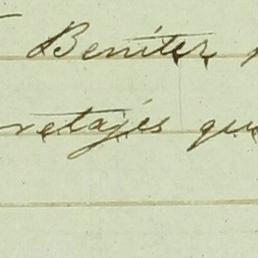 Beniter
retajes que